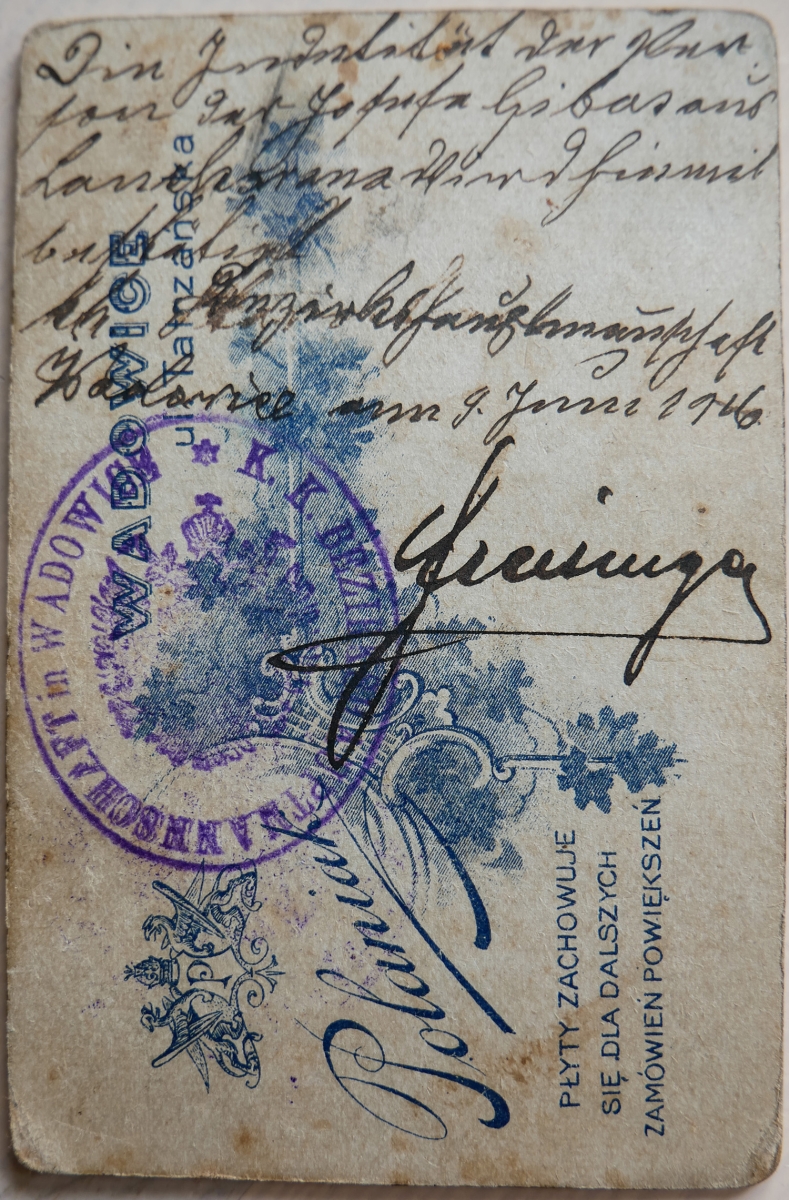 Die Indentität der Per-
son der Josefa Gibas aus
Lanckorona wird hiemit
bestätigt
Bezirkshauptmannschaft
Wadowice am 9. Juni 1916.
K. K. BEZIRKSHAUPTMANNSCHAFT in WADOWICE
WADOWICE
ul. Tatrzańska
Polaniak
P
PŁYTY ZACHOWUJE
SIĘ DLA DALSZYCH
ZAMÓWIEŃ POWIĘKSZEŃ